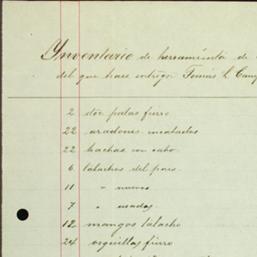 Ynventario de herramienta de
del que hace entrega Tomás L. Camp
2 dós palas fierro
22 azadones encabados
22 hachas con cabo
6 talachos del pais
11 " nuevos
7 " usados
12 mangos talacho
24 orquillas fierro